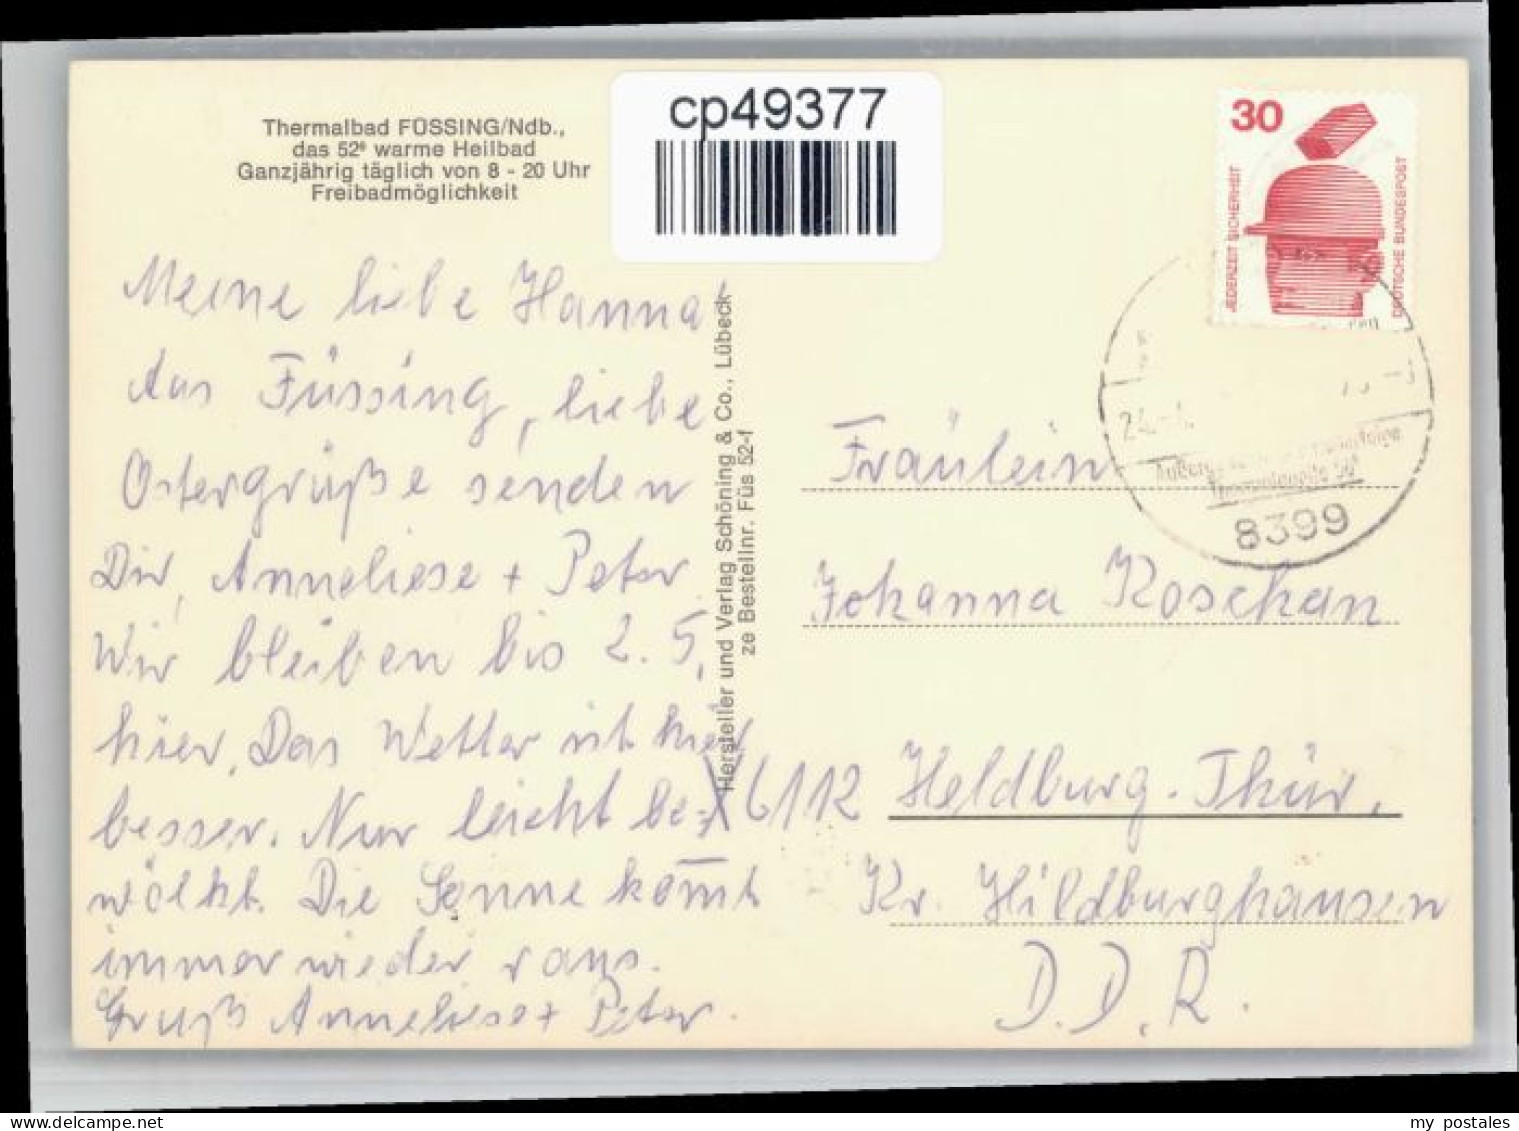 Thermalbad FÜSSING/Ndb.,
das 52° warme Heilbad
Ganzjährig täglich von 8 - 20 Uhr
Freibadmöglichkeit
cp49377
30
JEDERZEIT SICHERHEIT
DEUTSCHE BUNDESPOST
Meine liebe Hanna
Aus Füssing, liebe
Ostergrüße senden
Dir, Anneliese + Peter.
Wir bleiben bis 2. 5.
hier. Das Wetter ist hier
besser. Nur leicht be-
wölkt. Die Sonne kom̅t
immer wieder raus.
Gruß Anneliese + Peter.
Hersteller und Verlag Schöning & Co., Lübeck
ze Bestellnr. Füs 52-f
8399
Fräulein
Johanna Koschan
X 6112 Heldburg. Thür.
Kr. Hildburghausen
D. D. R.
my postales